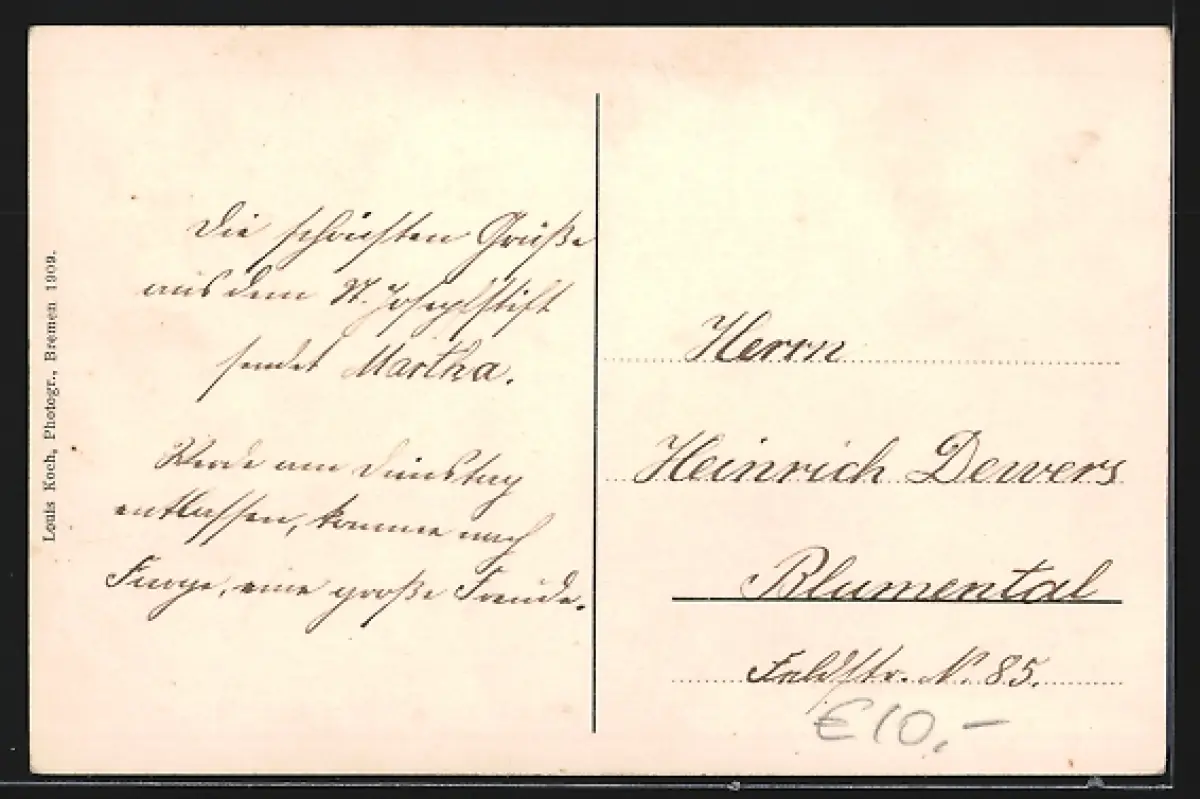 Louis Koch, Photogr., Bremen 1909.
Die schönsten Grüße
aus dem St. Josephstift
sendet Martha.
Werde am Dienstag
entlassen, komme nach
Farge, eine große Freude.
Herrn
Heinrich Dewers
Blumental
Feldstr. N. 85.
€ 10,-